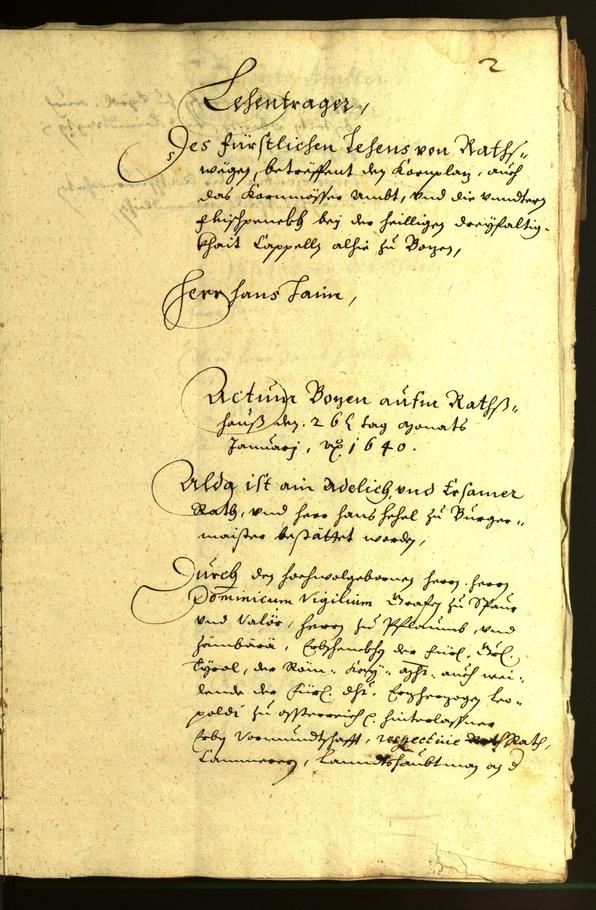 2
Lehentrager,
Des fürstlichen Lehens von Raths-
wegen, betreffent den Kornplaz, auch
das Kornmösser Ambt, und die undtern
fleischpenckh bey der heilligen dreyfaltig-
khait Cappelln alhie zu Bozen,
Herr Hans Zaun,
Actum Bozen aufm Raths-
hauß den 26. tag Monats
Januarj, 1640.
Alda ist ain Adelich und Ersamer
Rath, und herr Hans hehel zu Burger-
maister bestättet worden,
Durch den hochwolgebornen herrn herrn
Dominicum Vigilium Grafen zu Spaur
und Valör, herrn zu Pflaumb, und
Erbschenkhen der fürl. Grf.
Tyrol, der Röm. Kay. Mht. auch wei-
lende der Fürl. dht. Erzherzogen Leo-
poldi zu össterreich hinterlassner
Erben Vormundtschafft, respective Rath,
Cammerer, Lanndtshaubtman an d